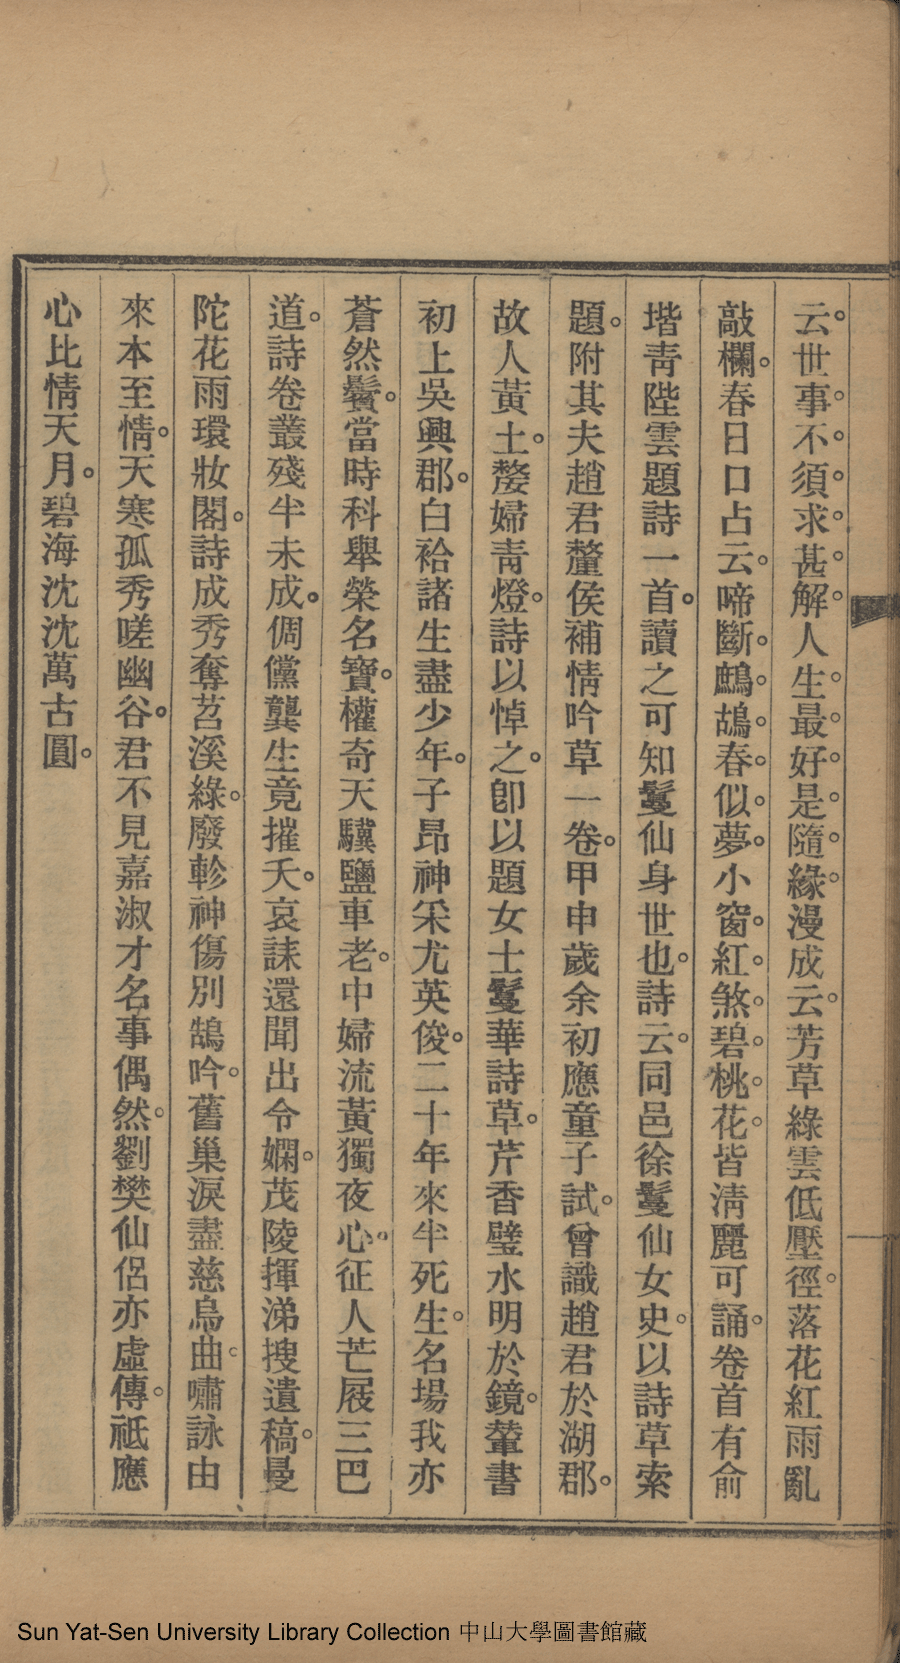 云。世事。不。須。求。甚。解。人生。最。好。是。隨。緣。漫成云。芳草綠雲低壓徑。落花紅雨亂
敲欄。春日口占云。啼斷。鷓。鴣。春。似。夢。小窗。紅。煞。碧。桃。花。皆淸麗可誦。卷首有俞
堦靑陛雲題詩一首。讀之可知鬘仙身世也。詩云。同邑徐鬘仙女史。以詩草索
題。附其夫趙君釐侯補情吟草一卷。甲申歲余初應童子試。曾識趙君於湖郡。
故人黃土。嫠婦靑燈。詩以悼之。卽以題女士鬘華詩草。芹香璧水明於鏡。輦書
初上吳興郡。白袷諸生盡少年。子昂神采尤英俊。二十年來半死生。名場我亦
蒼然鬢。當時科舉榮名寶。權奇天驥鹽車老。中婦流黃獨夜心。征人芒屐三巴
道。詩卷叢殘半未成。倜儻龔生竟摧夭。哀誄還聞出令嫻。茂陵揮涕搜遺稿。曼
陀花雨環妝閣。詩成秀奪苕溪綠。廢軫神傷別鵠吟。舊巢淚盡慈烏曲。嘯詠由
來本至情。天寒孤秀嗟幽谷。君不見嘉淑才名事偶然。劉樊仙侶亦虛傳。祗應
心比情天月。碧海沈沈萬古圓。
Sun Yat-Sen University Library Collection 中山大學圖書館藏